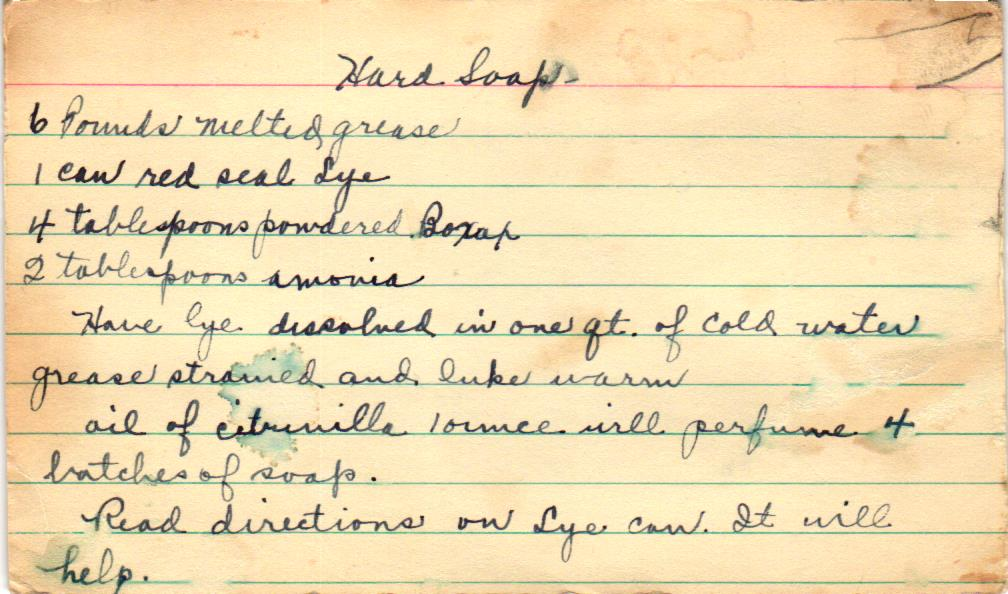 Hard Soap
6 Pounds melted grease
1 can red seal Lye
4 tablespoons powdered Boxax
2 tablespoons amonia
Have lye dissolved in one qt. of cold water
grease strained and luke warm
oil of citrinilla 1 ounce will perfume 4
batches of soap.
Read directions on Lye can. It will
help.